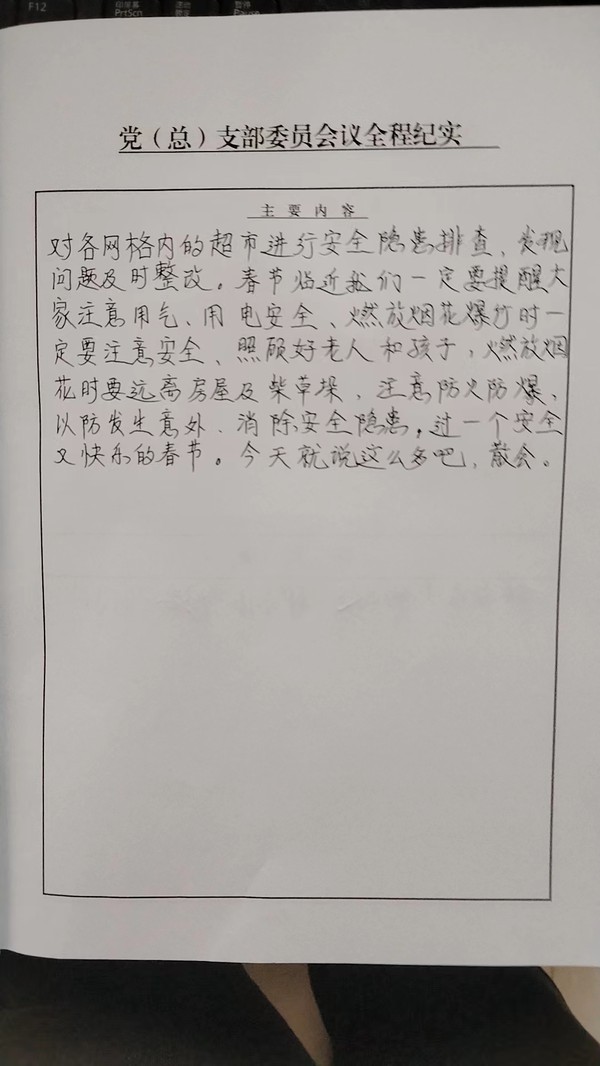 F12
印屏幕
PrtScn
暂停
Pause
党（总）支部委员会议全程纪实
主要内容
对各网格内的超市进行安全隐患排查、发现
问题及时整改。春节临近我们一定要提醒大
家注意用气、用电安全、燃放烟花爆竹时一
定要注意安全、照顾好老人和孩子，燃放烟
花时要远离房屋及柴草垛，注意防火防爆、
以防发生意外、消除安全隐患，过一个安全
又快乐的春节。今天就说这么多吧，散会。